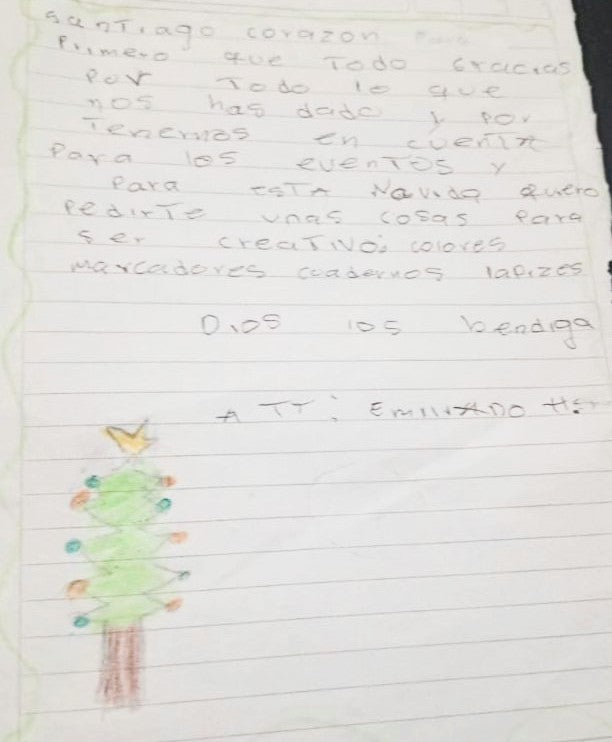 santiago corazon
Primero que Todo Gracias
por Todo lo que
nos has dado y por
Tenernos en cuenta
Para los evenTos y
Para esta Navida quero
PedirTe unas cosas para
ser creaTivo: colores
marcadores cuadernos lapizes
Dios los bendiga
ATT: